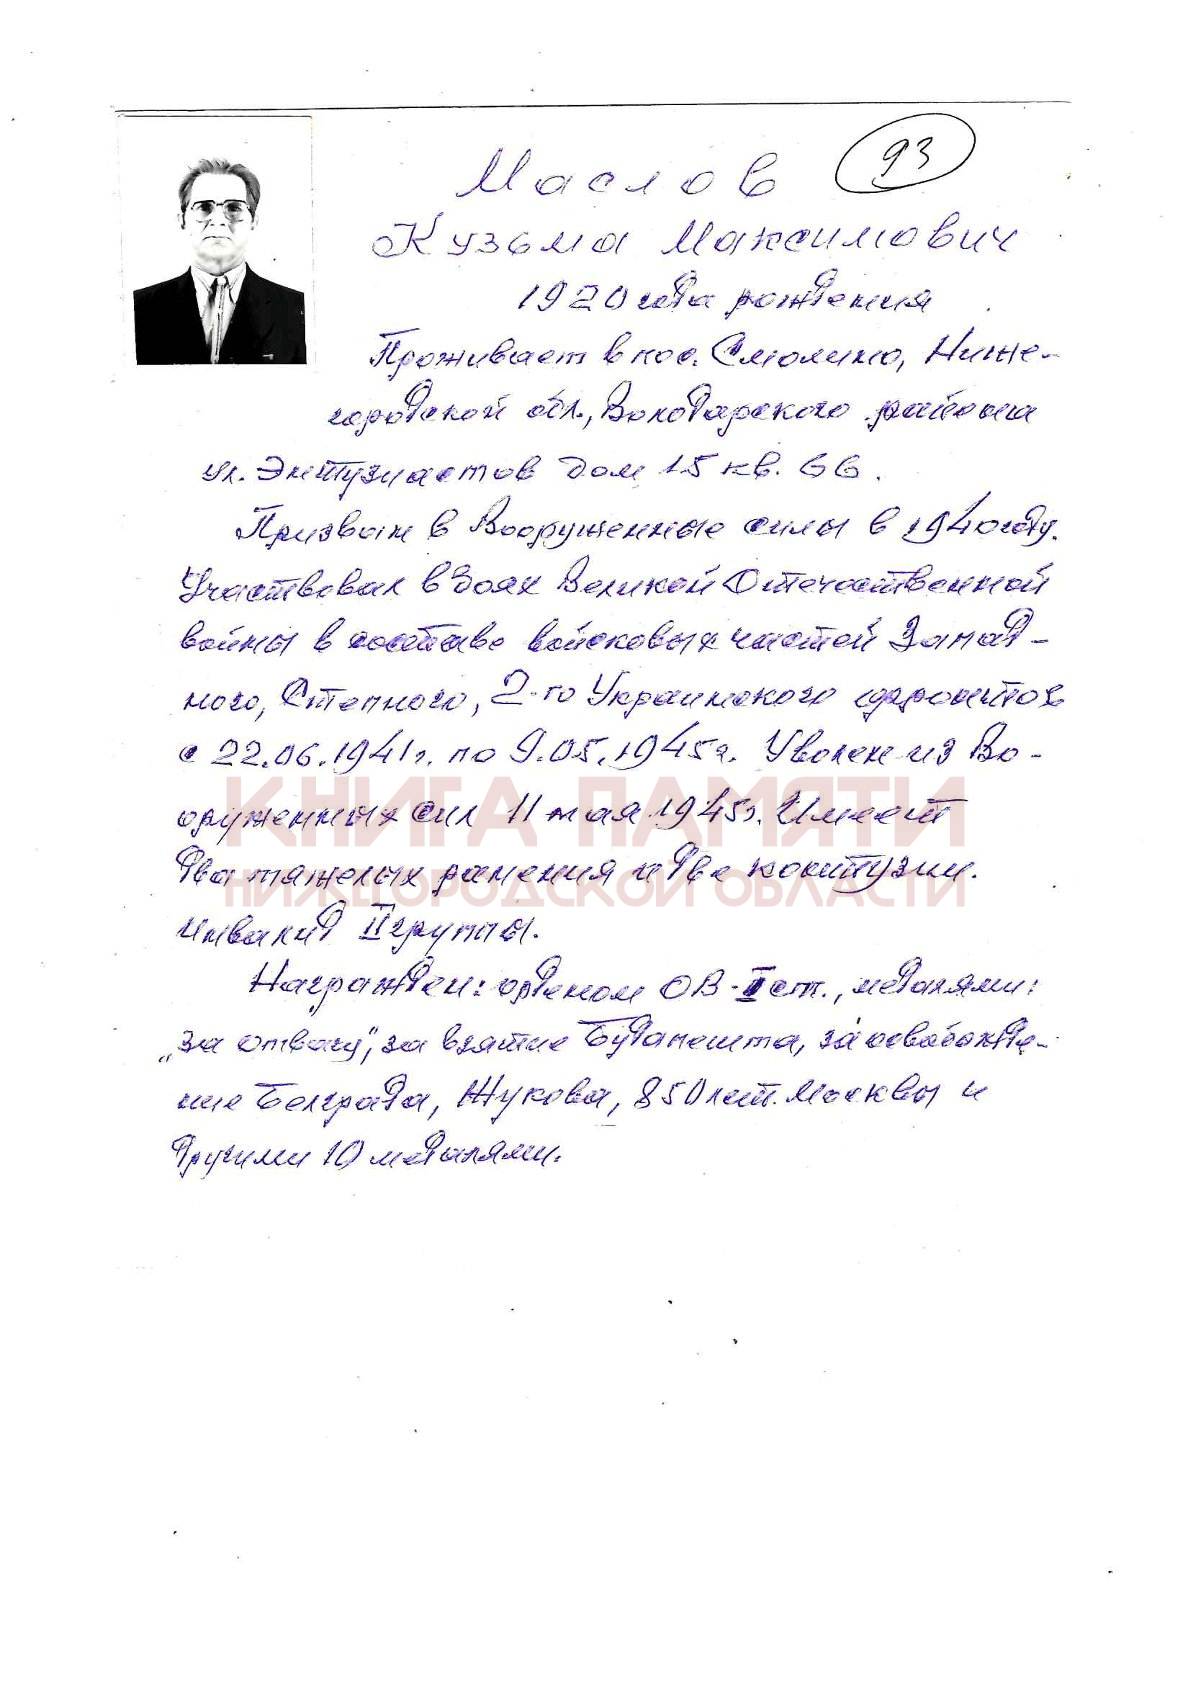 93
Маслов
Кузьма Максимович
1920 года рождения
Проживает в пос. Смолино, Ниже-
городской обл., Володарского района
ул. Энтузиастов дом 15 кв. 66.
Призван в Вооруженные силы в 1940 году.
Участвовал в боях Великой Отечественной
войны в составе войсковых частей Запад-
ного, Степного, 2-го Украинского фронтов
с 22.06.1941г. по 9.05.1945г. Уволен из Во-
оруженных сил 11 мая 1945г. Имеет
два тяжелых ранения и две контузии.
Инвалид II группы.
Награжден: орденом ОВ-I ст., медалями:
„За отвагу", за взятие Будапешта, за освобожде-
ние Белграда, Жукова, 850 лет Москвы и
другими 10 медалями.
КНИГА ПАМЯТИ
НИЖЕГОРОДСКОЙ ОБЛАСТИ